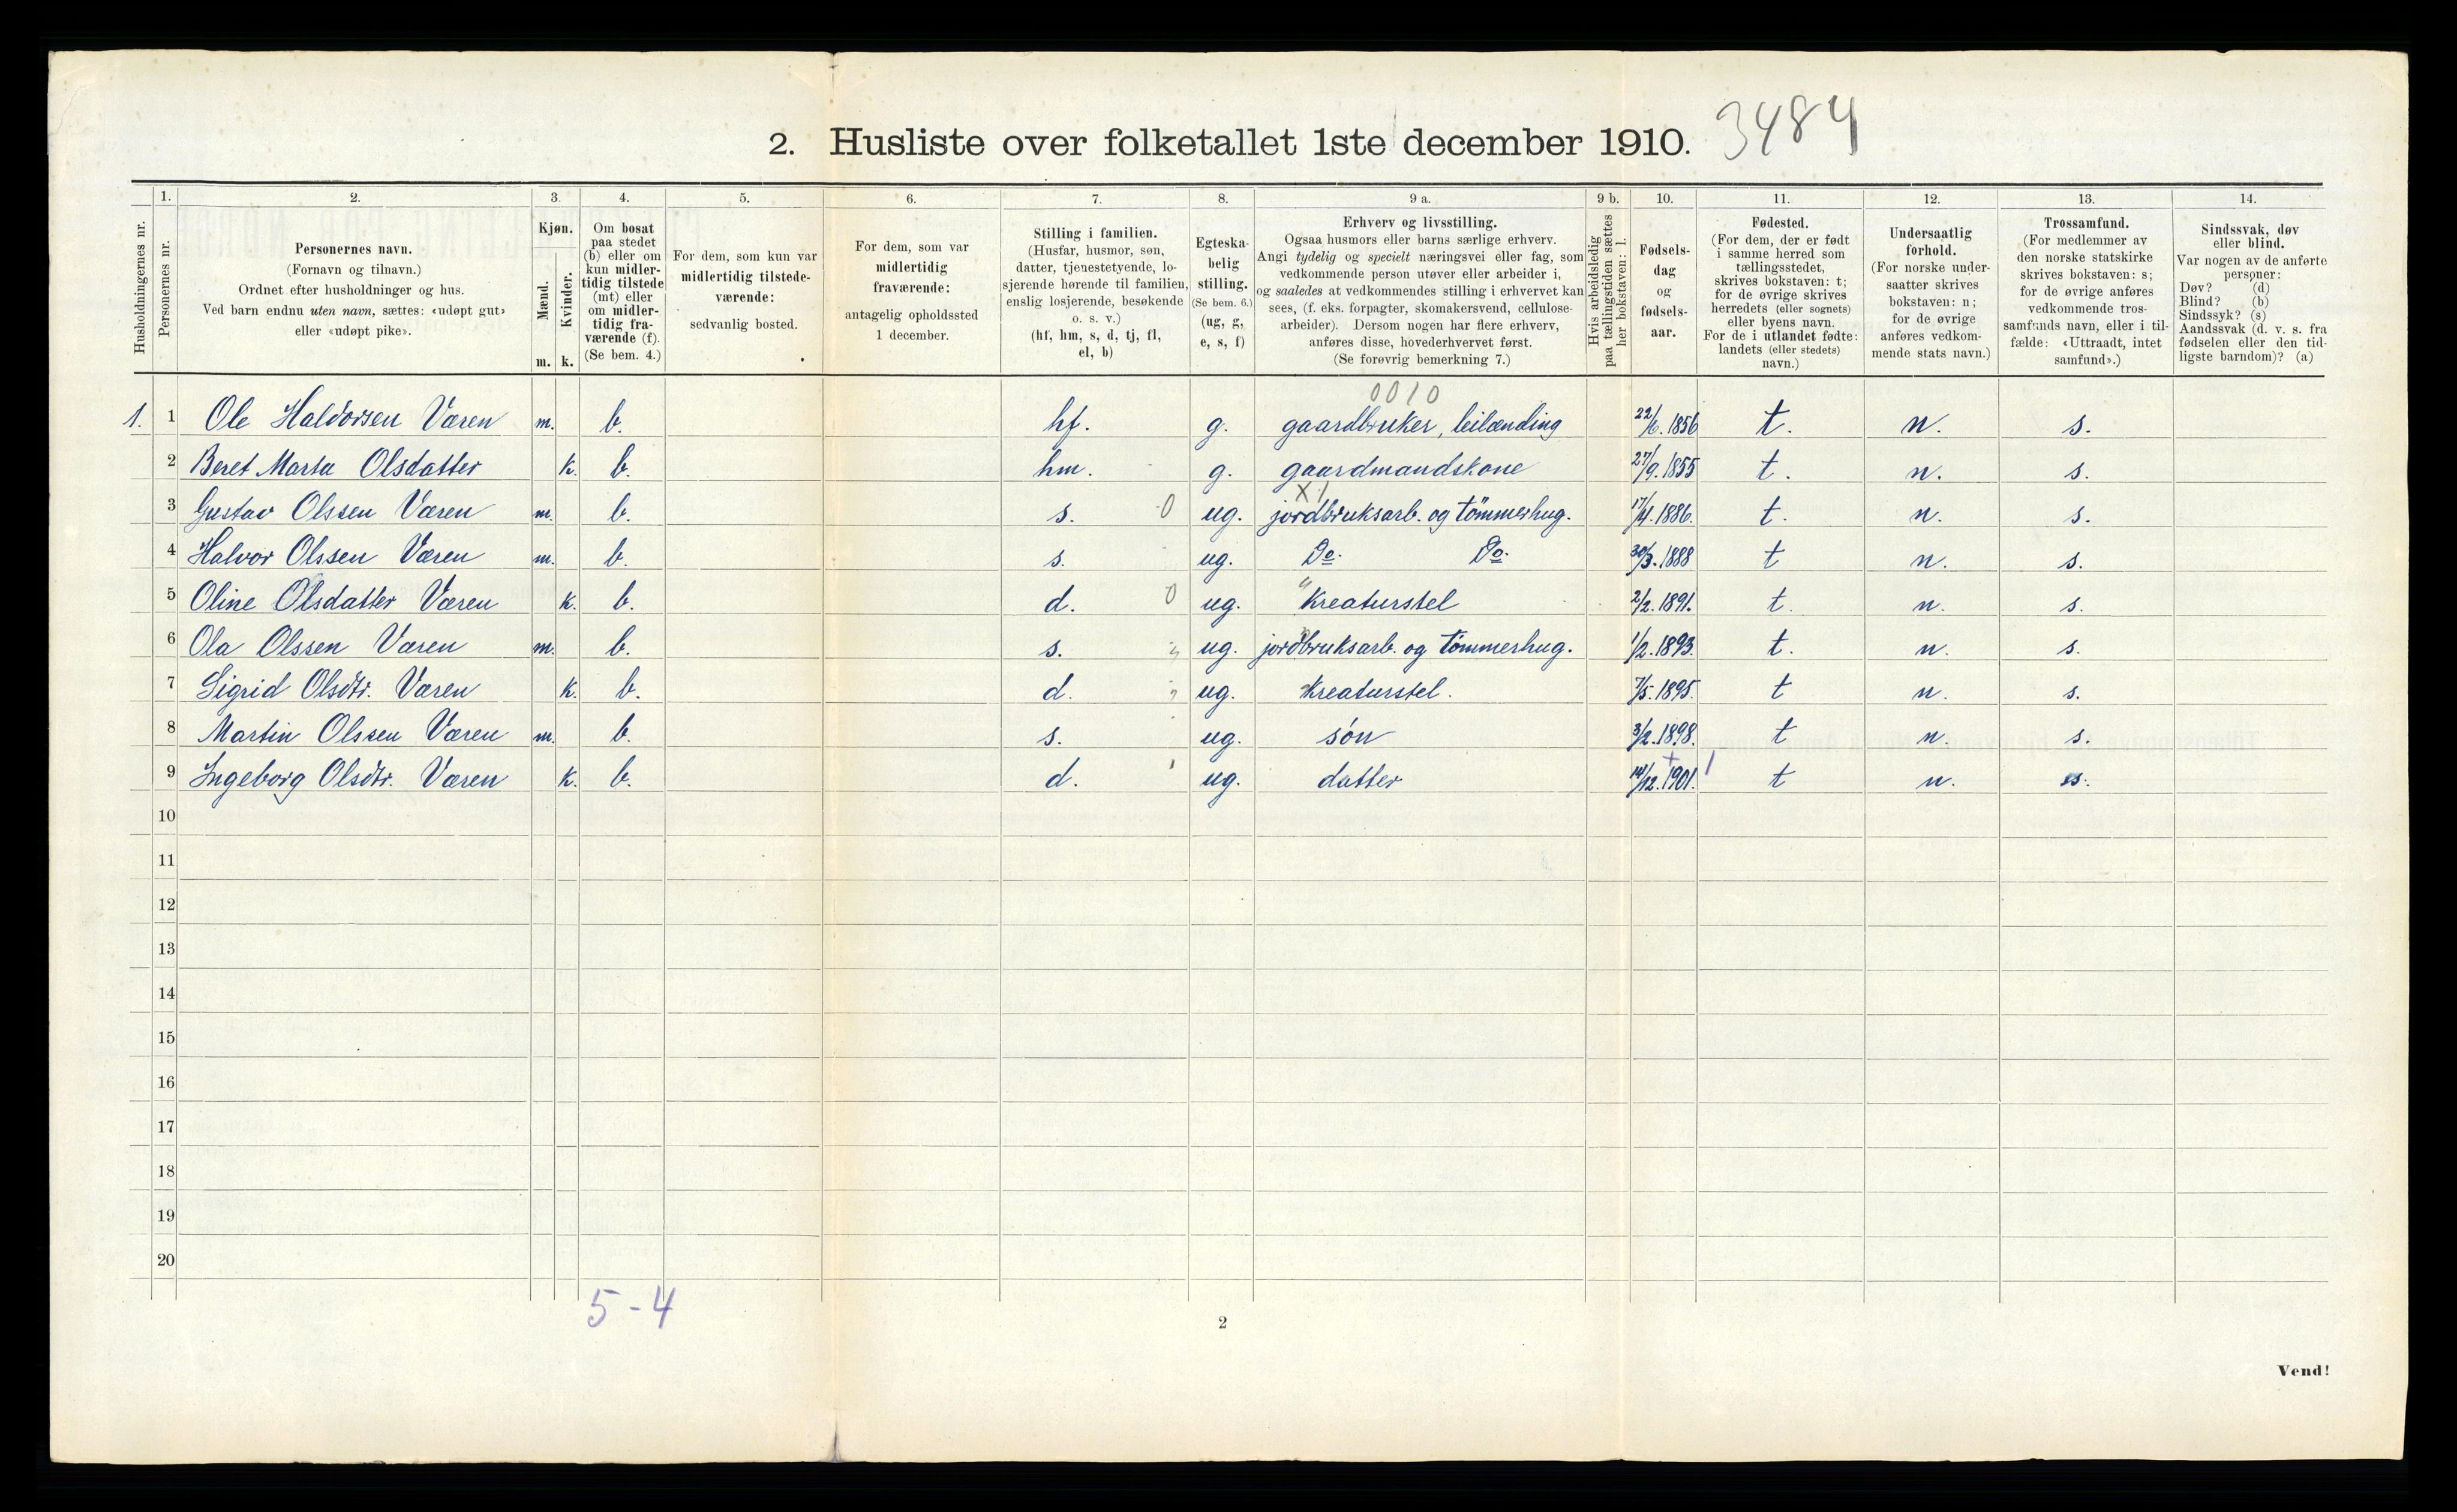 2. Husliste over folketallet 1ste december 1910. 3484
Husholdningernes nr.
1. Personernes nr.
2. Personernes navn.
(Fornavn og tilnavn.)
Ordnet efter husholdninger og hus.
Ved barn endnu uten navn, sættes: «udøpt gut»
eller «udøpt pike».
3. Kjøn.
Mænd. m.
Kvinder. k.
4. Om bosat
paa stedet
(b) eller om
kun midler-
tidig tilstede
(mt) eller
om midler-
tidig fra-
værende (f).
(Se bem. 4.)
5. For dem, som kun var
midlertidig tilstede-
værende:
sedvanlig bosted.
6. For dem, som var
midlertidig
fraværende:
antagelig opholdssted
1 december.
7. Stilling i familien.
(Husfar, husmor, søn,
datter, tjenestetyende, lo-
sjerende hørende til familien,
enslig losjerende, besøkende
o. s. v.)
(hf, hm, s, d, tj, fl,
el, b)
8. Egteska-
belig
stilling.
(Se bem. 6.)
(ug, g,
e, s, f)
9 a. Erhverv og livsstilling.
Ogsaa husmors eller barns særlige erhverv.
Angi tydelig og specielt næringsvei eller fag, som
vedkommende person utøver eller arbeider i,
og saaledes at vedkommendes stilling i erhvervet kan
sees, (f. eks. forpagter, skomakersvend, cellulose-
arbeider). Dersom nogen har flere erhverv,
anføres disse, hovederhvervet først.
(Se forøvrig bemerkning 7.)
9 b. Hvis arbeidsledig
paa tællingstiden sættes
her bokstaven: l.
10. Fødsels-
dag
og
fødsels-
aar.
11. Fødested.
(For dem, der er født
i samme herred som
tællingsstedet,
skrives bokstaven: t;
for de øvrige skrives
herredets (eller sognets)
eller byens navn.
For de i utlandet fødte:
landets (eller stedets)
navn.)
12. Undersaatlig
forhold.
(For norske under-
saatter skrives
bokstaven: n;
for de øvrige
anføres vedkom-
mende stats navn.)
13. Trossamfund.
(For medlemmer av
den norske statskirke
skrives bokstaven: s;
for de øvrige anføres
vedkommende tros-
samfunds navn, eller i til-
fælde: «Uttraadt, intet
samfund».)
14. Sindssvak, døv
eller blind.
Var nogen av de anførte
personer:
Døv? (d)
Blind? (b)
Sindssyk? (s)
Aandssvak (d. v. s. fra
fødselen eller den tid-
ligste barndom)? (a)
0010
1. 1 Ole Haldorsen Væren m. b. hf. g. gaardbruker, leilænding 22/6. 1856 t. n. s.
2 Beret Marta Olsdatter k. b. hm. g. gaardmandskone 27/9. 1855 t. n. s.
X1
3 Gustav Olssen Væren m. b. s. 0 ug. jordbruksarb. og tömmerhug. 17/4. 1886. t. n. s.
4 Halvor Olssen Væren m. b. s. ug. Do. Do. 30/3. 1888 t n. s.
5 Oline Olsdatter Væren k. b. d. 0 ug. Kreaturstel 2/2. 1891. t. n. s.
6 Ola Olssen Væren m. b. s. ug. jordbruksarb. og tömmerhug. 1/2. 1893. t. n. s.
7 Sigrid Olsdtr. Væren k. b. d. ug. Kreaturstel. 7/5. 1895. t n. s.
8 Martin Olssen Væren m. b. s. ug. són 3/2. 1898. t n. s.
9 Ingeborg Olsdtr. Væren k. b. d. ug. datter 14/12. 1901. t n. s.
10
11
12
13
14
15
16
17
18
19
20
5 - 4
2
Vend!